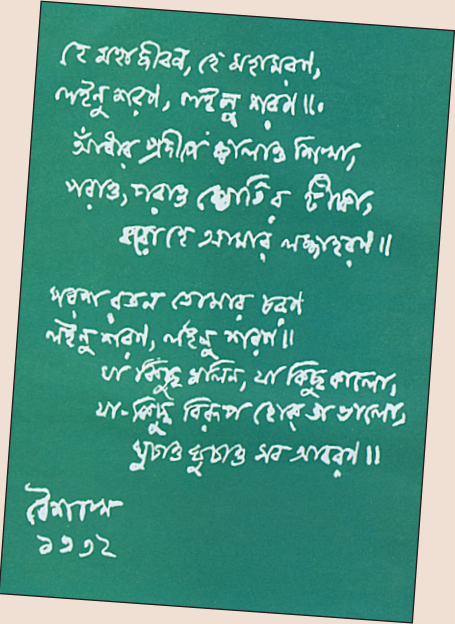 হে মহাজীবন, হে মহামরণ,
লইনু শরণ, লইনু শরণ॥
আঁধার প্রদীপে জ্বালাও শিখা,
পরাও, পরাও জ্যোতির টীকা,
করো হে আমার লজ্জাহরণ॥
পরশ রতন তোমার চরণ
লইনু শরণ, লইনু শরণ॥
যা কিছু মলিন, যা কিছু কালো,
যা-কিছু বিরূপ হোক তা ভালো,
ঘুচাও ঘুচাও সব আবরণ॥
বৈশাখ
১৩৩২